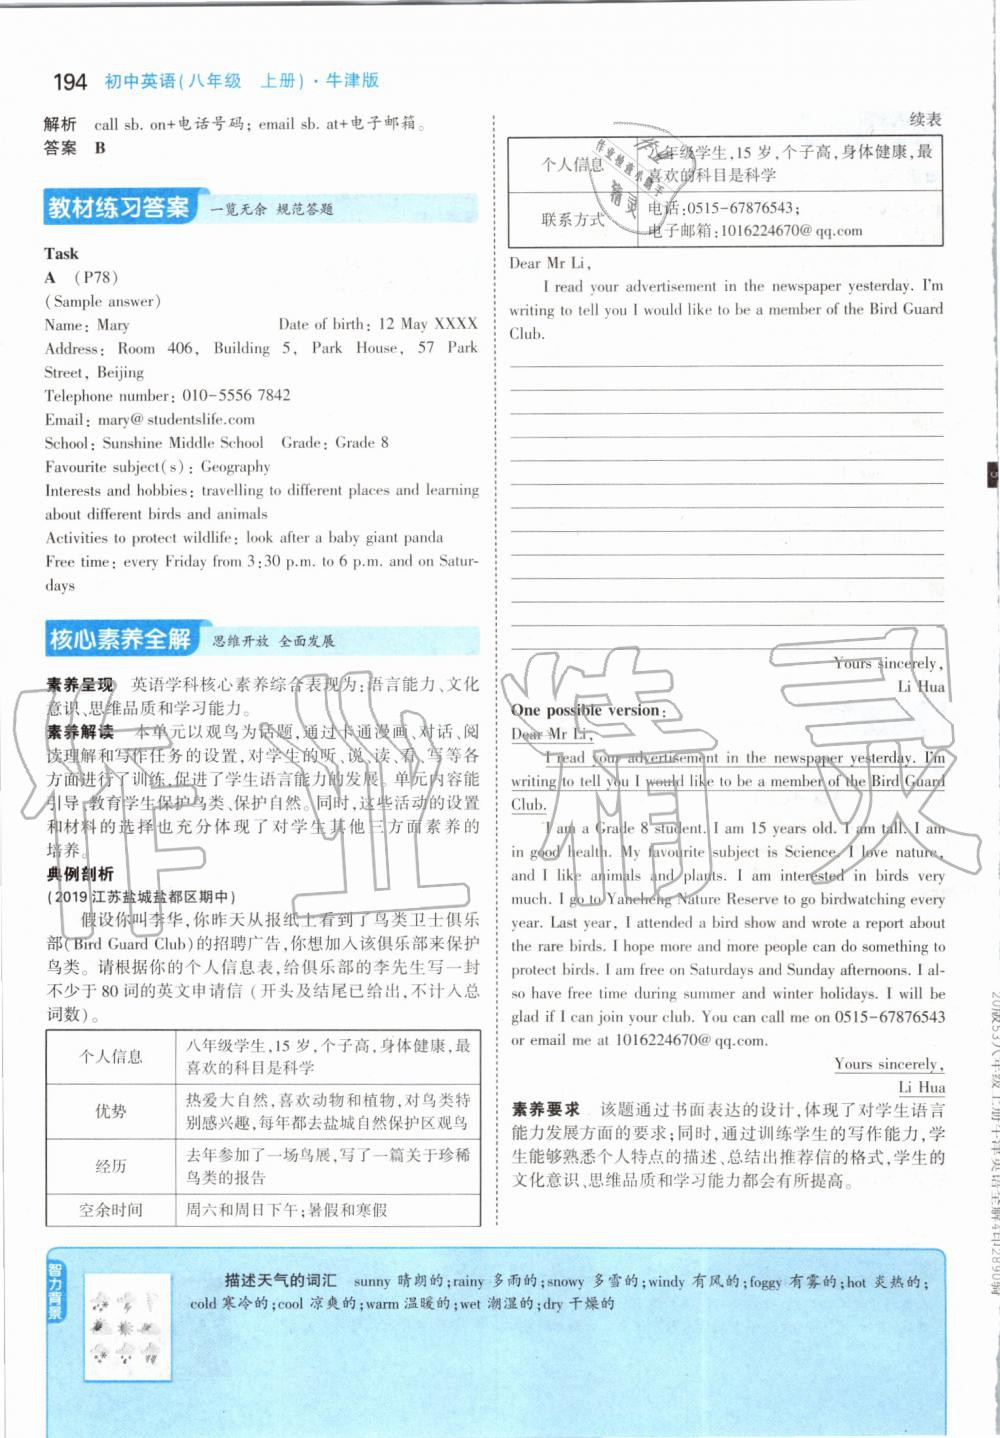 194 初中英语(八年级 上册)·牛津版
解析 call sb. on+电话号码; email sb. at+电子邮箱。
答案 B
教材练习答案 一览无余 规范答题
Task
A (P78)
(Sample answer)
Name: Mary Date of birth: 12 May XXXX
Address: Room 406, Building 5, Park House, 57 Park
Street, Beijing
Telephone number: 010-5556 7842
Email: mary@studentslife.com
School: Sunshine Middle School Grade: Grade 8
Favourite subject(s): Geography
Interests and hobbies: travelling to different places and learning
about different birds and animals
Activities to protect wildlife: look after a baby giant panda
Free time: every Friday from 3:30 p.m. to 6 p.m. and on Satur-
days
核心素养全解 思维开放 全面发展
素养呈现 英语学科核心素养综合表现为:语言能力、文化
意识、思维品质和学习能力。
素养解读 本单元以观鸟为话题,通过卡通漫画、对话、阅
读理解和写作任务的设置,对学生的听、说、读、看、写等各
方面进行了训练,促进了学生语言能力的发展。单元内容能
引导、教育学生保护鸟类、保护自然。同时,这些活动的设置
和材料的选择也充分体现了对学生其他三方面素养的
培养。
典例剖析
(2019江苏盐城盐都区期中)
假设你叫李华,你昨天从报纸上看到了鸟类卫士俱乐
部(Bird Guard Club)的招聘广告,你想加入该俱乐部来保护
鸟类。请根据你的个人信息表,给俱乐部的李先生写一封
不少于80词的英文申请信(开头及结尾已给出,不计入总
词数)。
个人信息 八年级学生,15岁,个子高,身体健康,最
喜欢的科目是科学
优势 热爱大自然,喜欢动物和植物,对鸟类特
别感兴趣,每年都去盐城自然保护区观鸟
经历 去年参加了一场鸟展,写了一篇关于珍稀
鸟类的报告
空余时间 周六和周日下午;暑假和寒假
续表
个人信息 八年级学生,15岁,个子高,身体健康,最
喜欢的科目是科学
联系方式 电话:0515-67876543;
电子邮箱:1016224670@qq.com
Dear Mr Li,
I read your advertisement in the newspaper yesterday. I'm
writing to tell you I would like to be a member of the Bird Guard
Club.
Yours sincerely,
Li Hua
One possible version:
Dear Mr Li,
I read your advertisement in the newspaper yesterday. I'm
writing to tell you I would like to be a member of the Bird Guard
Club.
I am a Grade 8 student. I am 15 years old. I am tall. I am
in good health. My favourite subject is Science. I love nature,
and I like animals and plants. I am interested in birds very
much. I go to Yancheng Nature Reserve to go birdwatching every
year. Last year, I attended a bird show and wrote a report about
the rare birds. I hope more and more people can do something to
protect birds. I am free on Saturdays and Sunday afternoons. I al-
so have free time during summer and winter holidays. I will be
glad if I can join your club. You can call me on 0515-67876543
or email me at 1016224670@qq.com.
Yours sincerely,
Li Hua
素养要求 该题通过书面表达的设计,体现了对学生语言
能力发展方面的要求;同时,通过训练学生的写作能力,学
生能够熟悉个人特点的描述、总结出推荐信的格式,学生的
文化意识、思维品质和学习能力都会有所提高。
智力背景
描述天气的词汇 sunny 晴朗的;rainy 多雨的;snowy 多雪的;windy 有风的;foggy 有雾的;hot 炎热的;
cold 寒冷的;cool 凉爽的;warm 温暖的;wet 潮湿的;dry 干燥的
作业精灵
作业检查小助手